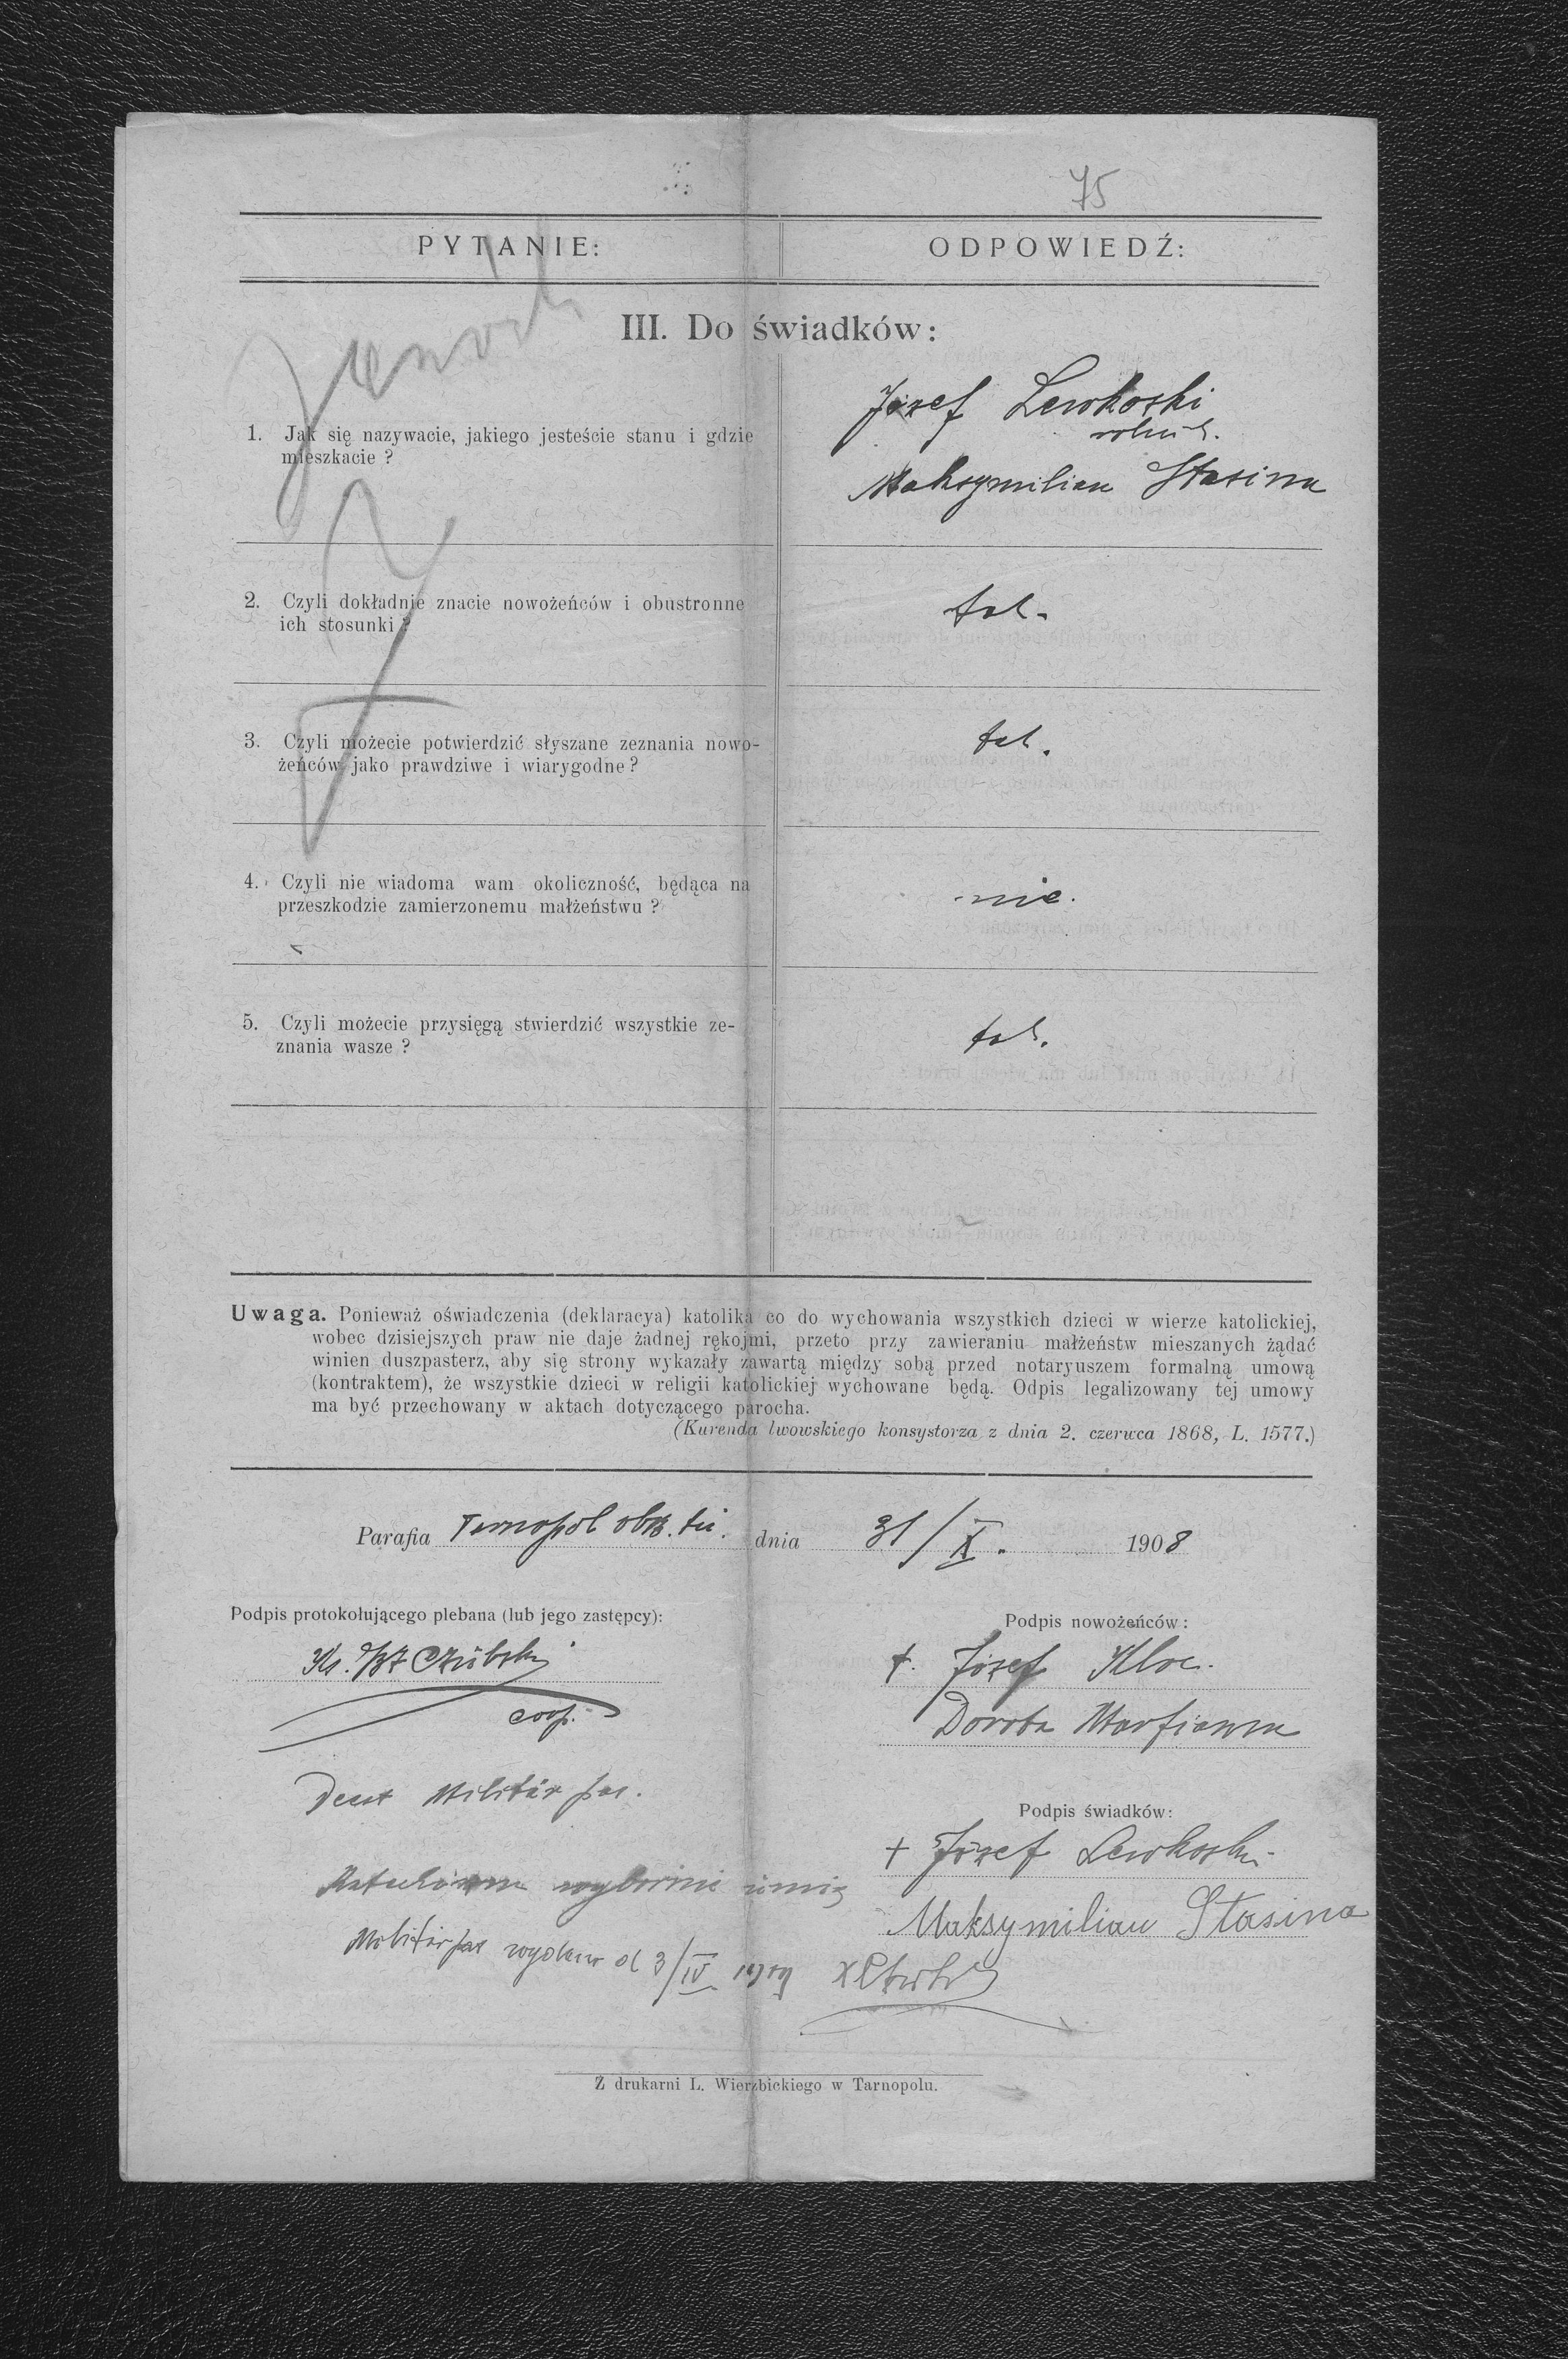 75
PYTANIE: ODPOWIEDŹ:
III. Do świadków:
1. Jak się nazywacie, jakiego jesteście stanu i gdzie
mieszkacie ?
Józef Lewkoski
rolnik.
Maksymilian Stasina
2. Czyli dokładnie znacie nowożeńców i obustronne
ich stosunki ?
tak.
3. Czyli możecie potwierdzić słyszane zeznania nowo-
żeńców jako prawdziwe i wiarygodne ?
tak.
4. Czyli nie wiadoma wam okoliczność, będąca na
przeszkodzie zamierzonemu małżeństwu ?
nie.
5. Czyli możecie przysięgą stwierdzić wszystkie ze-
znania wasze ?
tak.
Uwaga. Ponieważ oświadczenia (deklaracya) katolika co do wychowania wszystkich dzieci w wierze katolickiej,
wobec dzisiejszych praw nie daje żadnej rękojmi, przeto przy zawieraniu małżeństw mieszanych żądać
winien duszpasterz, aby się strony wykazały zawartą między sobą przed notaryuszem formalną umową
(kontraktem), że wszystkie dzieci w religii katolickiej wychowane będą. Odpis legalizowany tej umowy
ma być przechowany w aktach dotyczącego parocha.
(Kurenda lwowskiego konsystorza z dnia 2. czerwca 1868, L. 1577.)
Parafia Tarnopol dnia 31/X. 1908
Podpis protokołującego plebana (lub jego zastępcy):
coop.
Podpis nowożeńców:
+. Józef Kloc.
Dorota
Militär pas.
Podpis świadków:
+ Józef Lewkoski
Maksymilian Stasina
Militärpas 3/IV
Z drukarni L. Wierzbickiego w Tarnopolu.